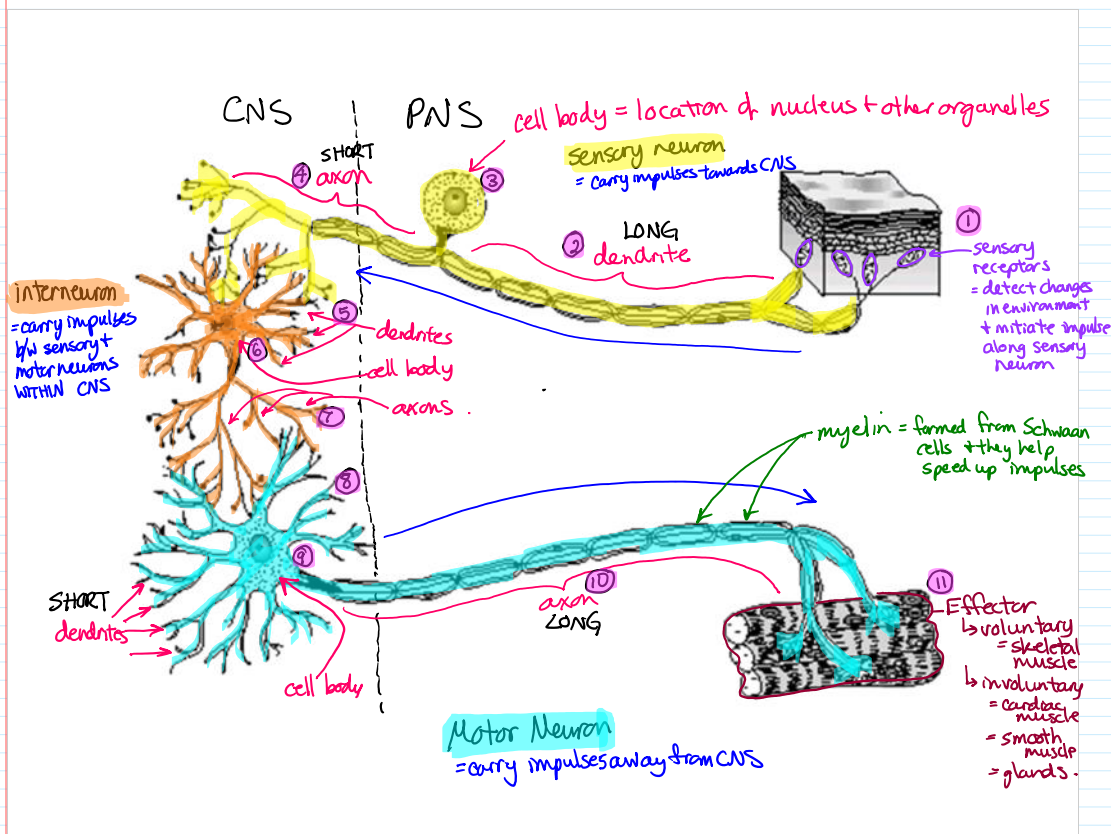 CNS
PNS
cell body = location of nucleus + other organelles
SHORT
④ axon
③
sensory neuron
= carry impulses towards CNS
①
② LONG
dendrite
sensory
receptors
= detect changes
in environment
+ initiate impulse
along sensory
neuron
interneuron
= carry impulses
b/w sensory +
motor neurons
WITHIN CNS
⑤
dendrites
⑥
cell body
⑦
axons.
myelin = formed from Schwaan
cells + they help
speed up impulses
⑧
⑨
SHORT
dendrites
cell body
⑩
axon
LONG
⑪
Effector
↳ voluntary
= skeletal
muscle
↳ involuntary
= cardiac
muscle
= smooth
muscle
= glands.
Motor Neuron
= carry impulses away from CNS